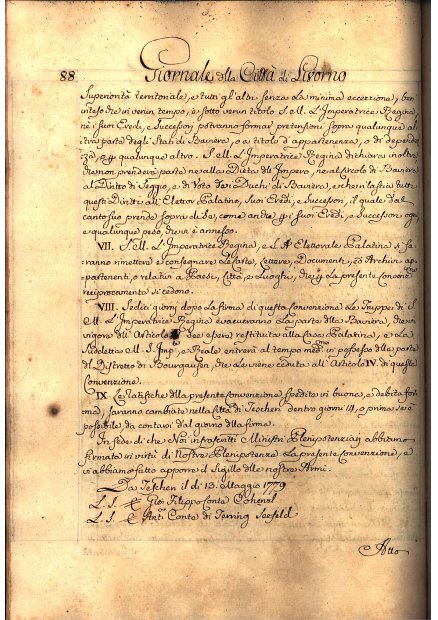 88 Giornale della Città di Livorno
Superiorità territoriale, e tutti gl'altri senza la minima eccezzione, ben
inteso che in verun tempo, e sotto verun titolo S. M. L'Imperatrice Regina
nè i suoi Eredi, e Successori potranno formar pretensioni sopra qualunque al
tra parte degli Stati di Baviera, o a titolo d'appartenenza, o di dependen
za, o qualunque altro. S. M. L'Imperatrice Regina dichiara inoltre
che non prenderà parte ne alla Dieta dell'Impero, ne al circolo di Baviera
al Diritto di Seggio, e di Voto dei Duchi di Baviera, e che lascia tutti
questi Diritti all'Elettor Palatino, Suoi Eredi, e Successori, il quale dal
canto suo prende sopra di se, come anche p i suoi Eredi, e Successori ogni,
e qualunque peso, che vi è annesso.
VII. S. M. L'Imperatrice Regina, e S. A. Elettorale Palatina si fa-
ranno rimettere e consegnare le Carte, Lettere, Documenti, ed Archivi ap-
partenenti, o relativi a Paesi, Città, e Luoghi, che p la presente convenne
reciprocamente si cedono.
VIII. Sedici giorni dopo la firma di questa convenzione le Truppe di S.
M. L'Imperatrice Regina evacueranno la parte della Baviera, che in
vigore dell'Articolo deve essere restituita alla Casa Palatina, e la
Sudetta M. S. Imp., e Reale entrerà al tempo med.mo in possesso della parte
di Distretto di Bourgausen, che le viene ceduta all'Articolo IV. di questa
Convenzione.
IX. Le Ratifiche della presente convenzione spedite in buona, e debita for-
ma, saranno cambiate nella Città di Teschen dentro giorni 14, o prima se è
possibile, da contarsi dal giorno della firma.
In fede di che Noi infrascritti Ministri Plenipotenziarj abbiamo
firmata in virtù di Nostra Plenipotenza la presente Convenzione, e
vi abbiamo fatto apporre il Sigillo delle nostre Armi.
Da Teschen il di 13. Maggio 1779
L. S. Gio: Filippo Conte Cohenzl
L. S. Ant.o Conte di Terring Seefeld
Atto